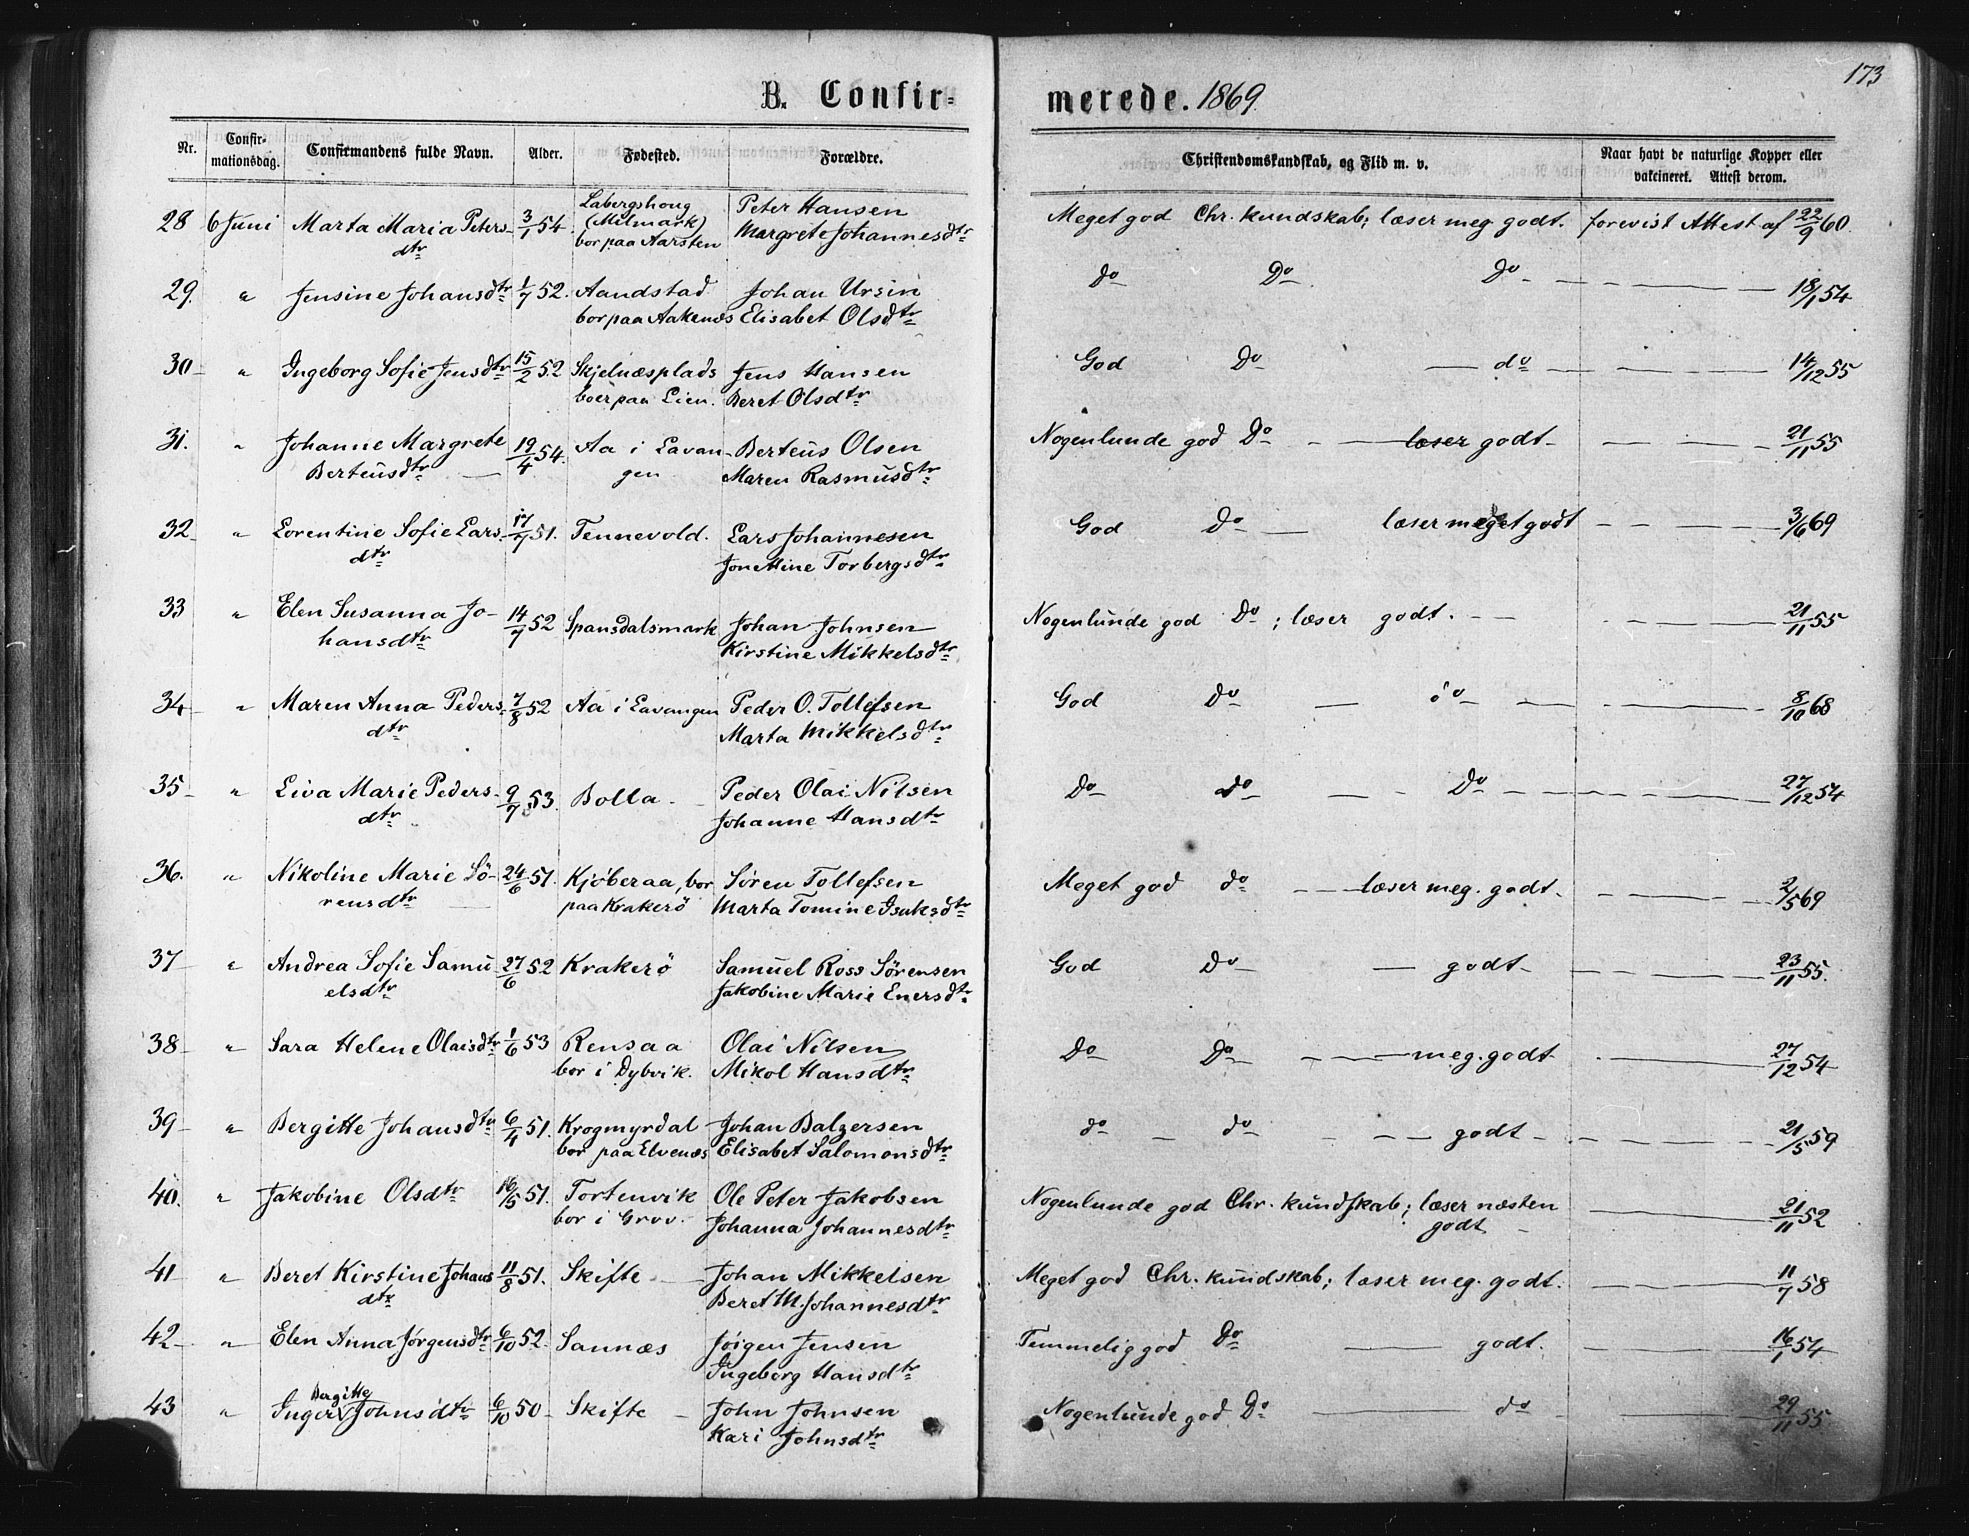 173
B. Confirmerede. 1869.
Nr. Confirmationsdag. Confirmandens fulde Navn. Alder. Fødested. Forældre. Christendomskundskab, og Flid m. v. Naar havt de naturlige Kopper eller vakcineret. Attest derom.
28 6 Juni Marta Maria Peters- 3/1 54. Labergshoug Peter Hansen Meget god Chr. kundskab; læser meg. godt. forevist Attest af 22/9 60.
dtr (Melmark) Margrete Johannesdtr
bor paa Aarsten
29. " Jensine Johansdtr 1/7 52. Aandstad Johan Ursin Do Do Do 18/1 54
bor paa Aakenes Elisabet Olsdtr
30 " Ingeborg Sofie Jensdtr 15/2 52 Skjelnæsplads Jens Hansen God Do do 14/12 55
boer paa Lien. Beret Olsdtr
31. " Johanne Margrete 19/4 54. Aa i Lavan- Berteus Olsen Nogenlunde god Do læser godt 21/11 55
Berteusdtr gen Maren Rasmusdtr
32 " Lorentine Sofie Lars- 17/7 51. Tennevold. Lars Johannesen God Do læser meget godt 3/6 69
dtr Jonettine Torbergsdtr
33 " Elen Susanna Jo- 14/7 52 Spansdalsmark Johan Johnsen Nogenlunde god Do; læser godt. 21/11 55
hansdtr Kirstine Mikkelsdtr
34 " Maren Anna Peders- 7/8 52 Aa i Lavangen Peder O. Tollefsen God Do do 8/10 68
dtr Marta Mikkelsdtr
35 " Liva Marie Peders- 9/7 53. Bolla. Peder Olai Nilsen Do do Do 27/12 54
dtr Johanne Hansdtr
36. " Nikoline Marie Sö- 24/6 51. Kjöberaa, bor Sören Tollefsen Meget god do læser meg. godt. 2/5 69
rensdtr paa Krakerö Marta Tomine Isaksdtr
37 " Andrea Sofie Samu 27/6 52 Krakerö Samuel Ross Sørensen God Do godt 23/11 55.
elsdtr Jakobine Marie Enersdtr
38 " Sara Helene Olaisdtr 1/6 53 Rensaa Olai Nilsen Do Do meg. godt 27/12 54
bor i Dybvik. Mikol Hansdtr
39 " Bergitte Johansdtr 6/4 51. Krogmyrdal Johan Balzersen do do godt 21/5 59
bor paa Elvenæs Elisabet Salomonsdtr
40. " Jakobine Olsdtr 16/5 51. Tortenvik Ole Peter Jakobsen Nogenlunde god Chr. kundskab; læser næsten 21/11 52
bor i Grov. Johanna Johannesdtr godt
41 " Beret Kirstine Johans 11/8 51. Skifte Johan Mikkelsen Meget god Chr. kundskab; læser meg. godt. 11/7 58
dtr Beret M. Johannesdtr
42 " Elen Anna Jörgensdtr 6/10 52. Sannæs Jörgen Jensen Temmelig god Do godt. 16/1 54
Ingeborg Hansdtr
Bergitte
43 " Inger Johnsdtr 6/10 50 Skifte John Johnsen Nogenlunde god Do do 29/11 55
Kari Johnsdtr